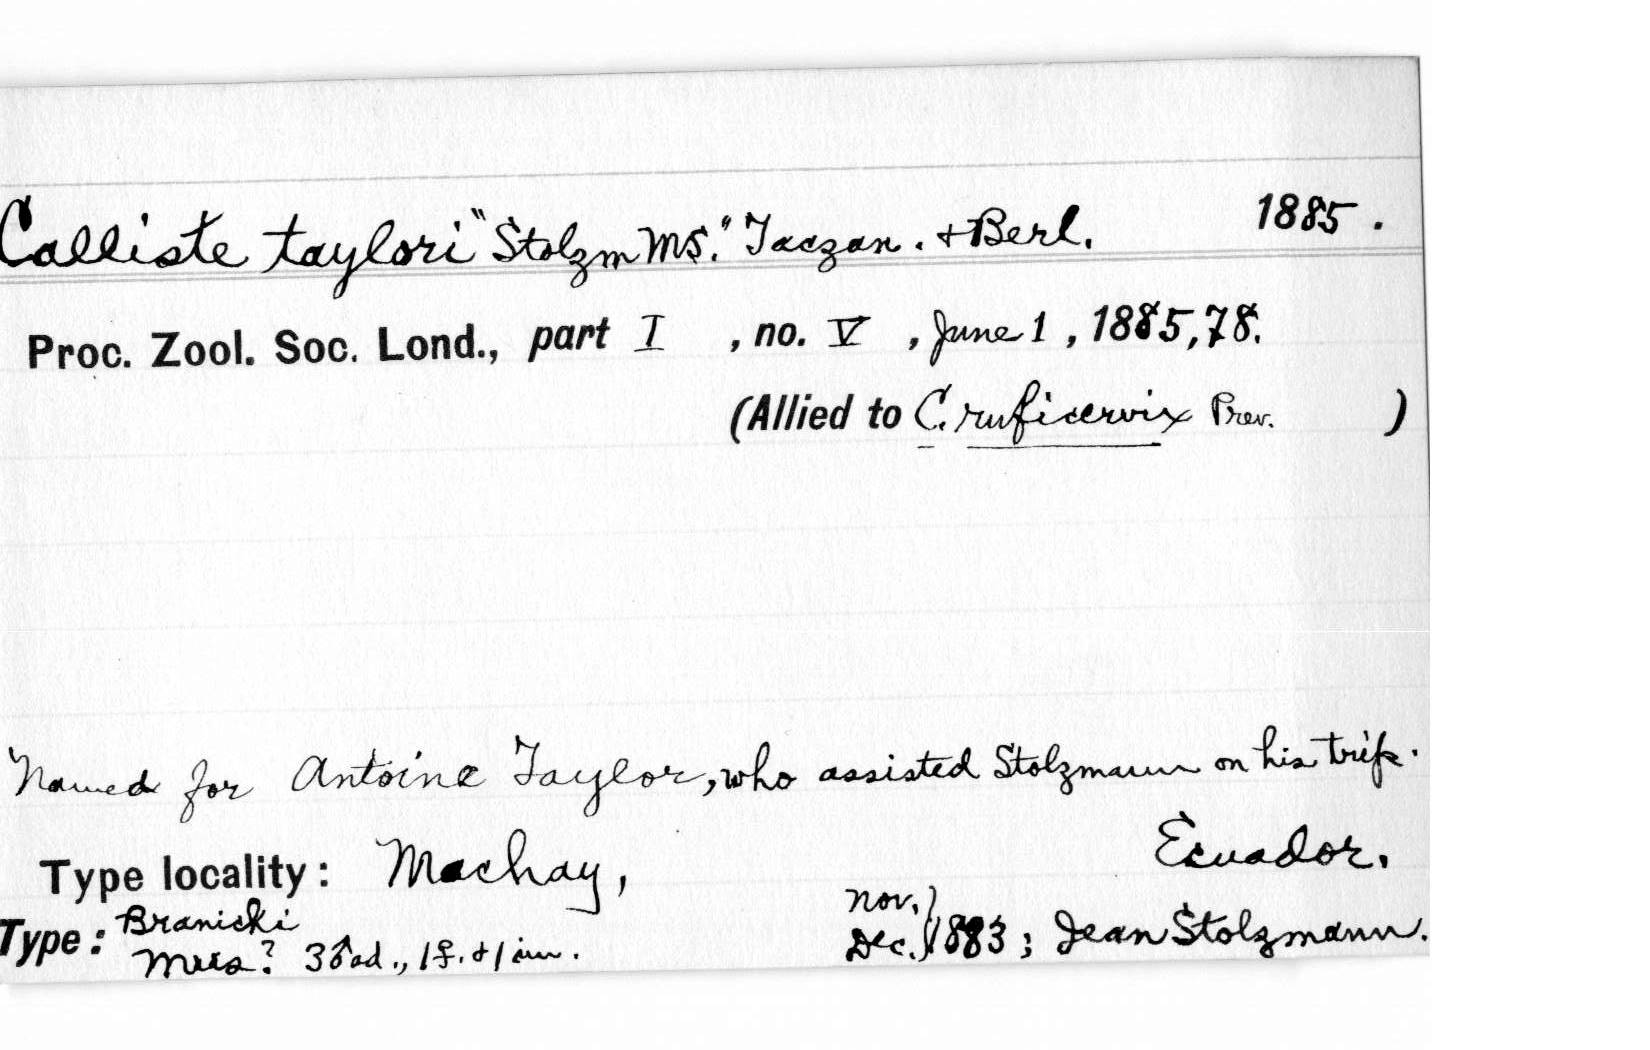 Calliste taylori "Stolzm MS." Taczan. + Berl. 1885.
Proc. Zool. Soc. Lond., part I , no. V , June 1 , 1885, 78.
(Allied to C. ruficervix Prev. )
Named for Antoine Taylor, who assisted Stolzmann on his trip.
Type locality: Machay, Ecuador.
Type: Branicki Nov.
Mus? 3♂ad., 1♀. + 1 im. Dec. 1883; Jean Stolzmann.